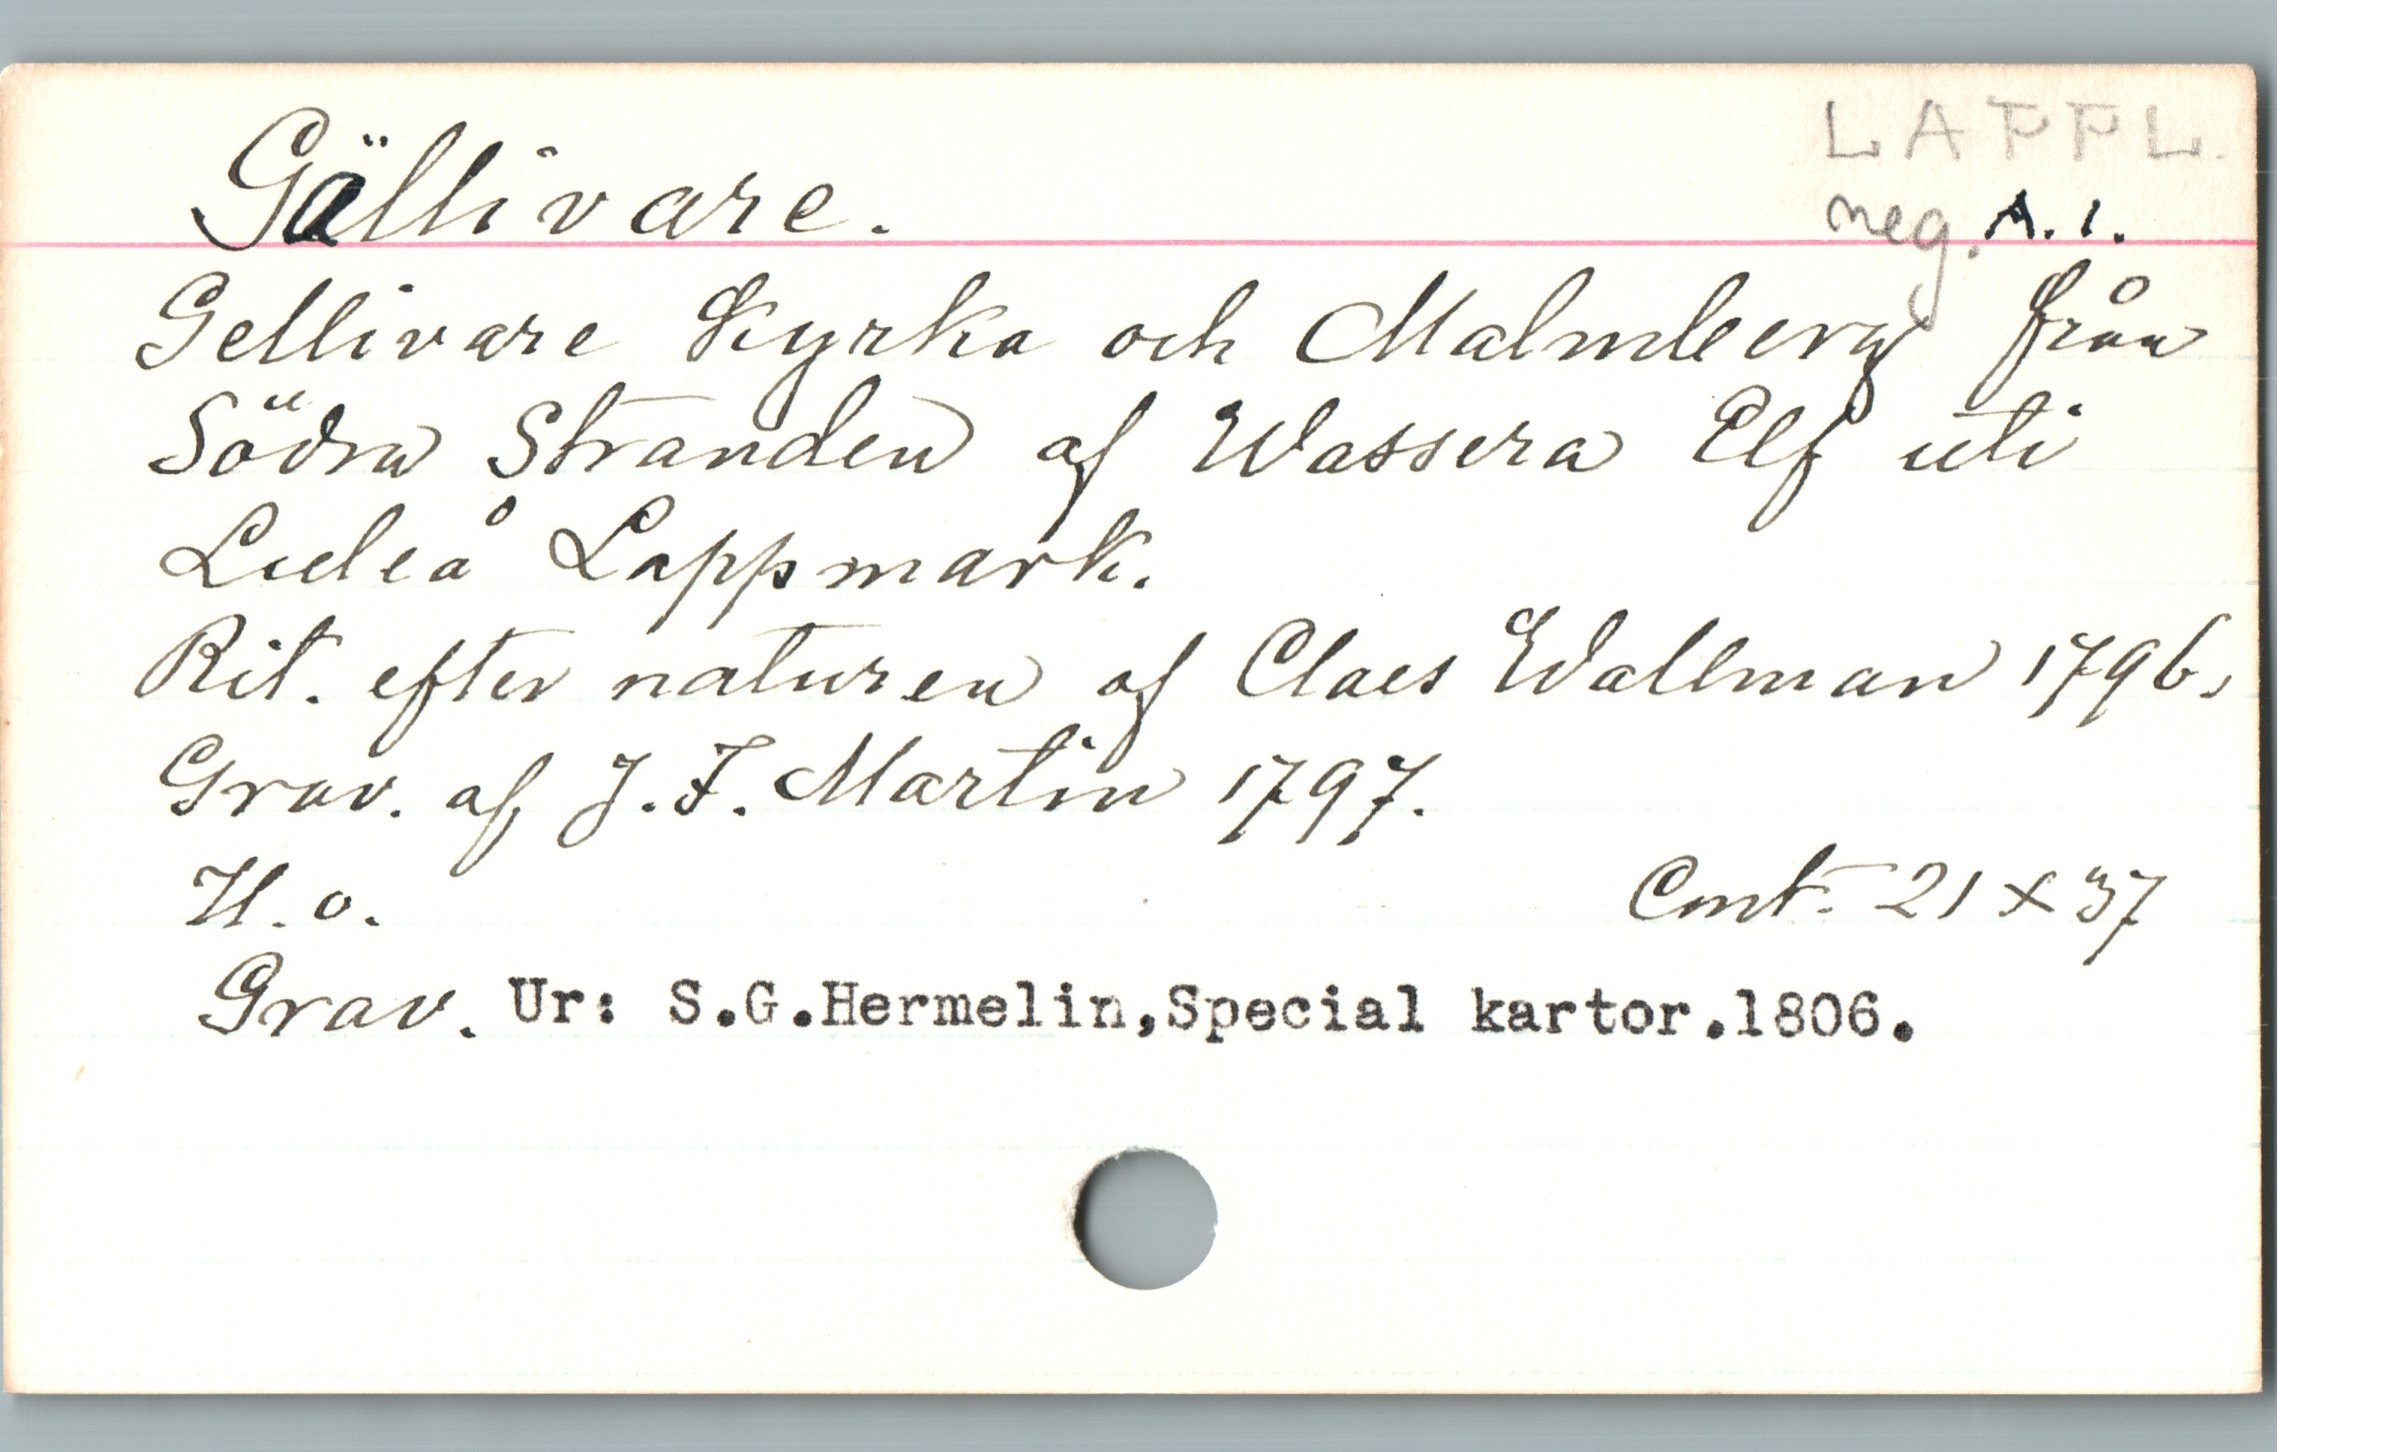 LAPPL.
Gällivare. neg. A. 1.
Gellivare Kyrka och Malmberg från
Södra Stranden af Wassera Elf uti
Luleå Lappmark.
Rit. efter naturen af Claes Wallman 1796,
Grav. af J. F. Martin 1797.
H. o. Cont. 21 x 37
Grav. Ur: S.G.Hermelin,Special kartor.1806.